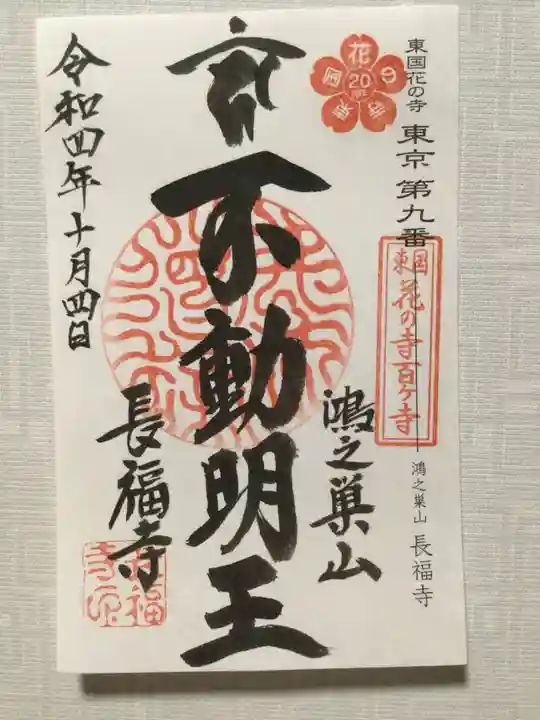 東国花の寺 東京 第九番 ―― 鴻之巣山 長福寺
花の寺 東国
20周年
東国
花の寺百ケ寺
鴻之巣山
不動明王
長福寺
令和四年十月四日